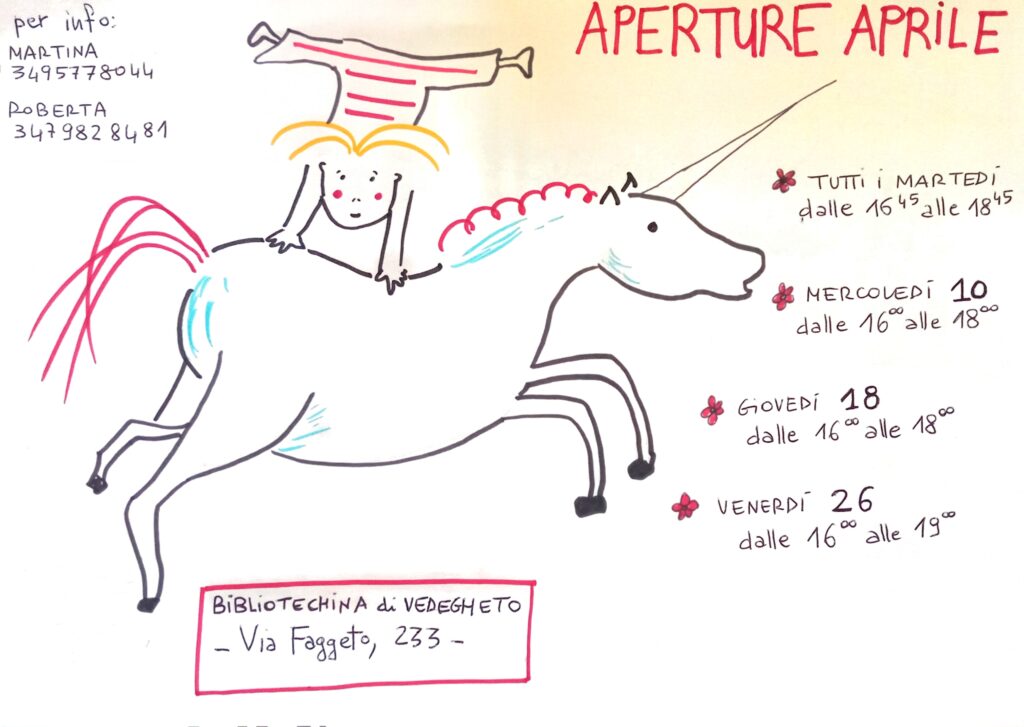 per info:
MARTINA
3495778044
ROBERTA
3479828481
APERTURE APRILE
TUTTI i MARTEDÍ
dalle 16 45 alle 18 45
MERCOLEDÍ 10
dalle 16 00 alle 18 00
GiOVEDÍ 18
dalle 16 00 alle 18 00
VENERDÍ 26
dalle 16 00 alle 19 00
BiBLiOTECHiNA di VEDEGHETO
- Via Faggeto, 233 -